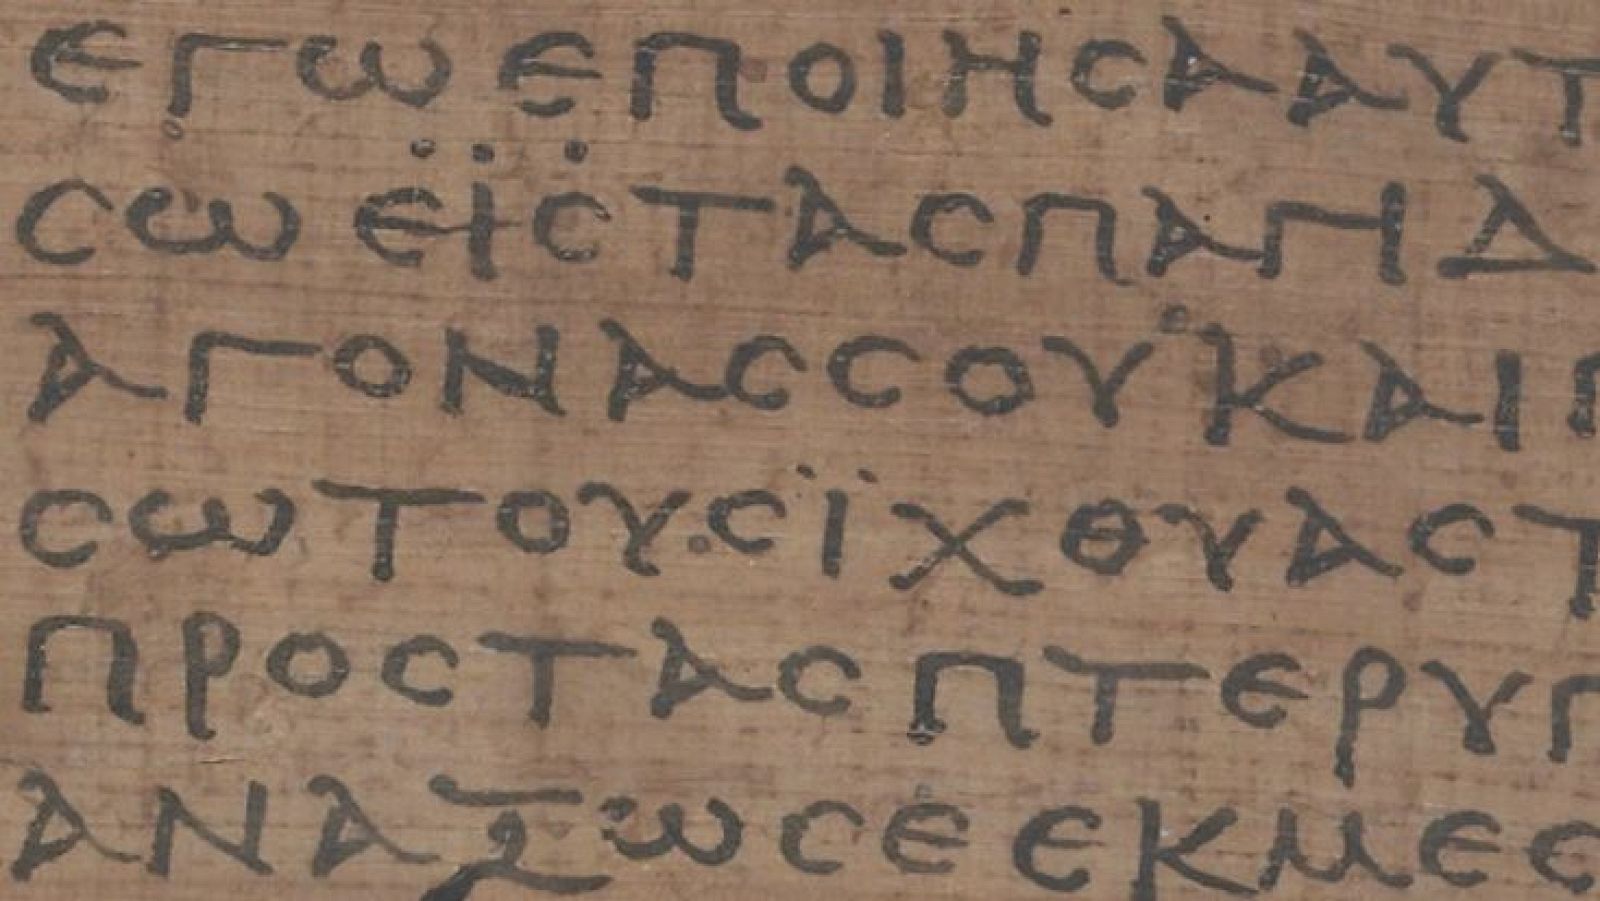 ΕΓΩ ΕΠΟΙΗΣΑ ΑΥΤ
ΣΩ ΕΪΣ ΤΑΣ ΠΑΓΙΔ
ΑΓΟΝΑΣ ΣΟΥ ΚΑΙ Π
ΣΩ ΤΟΥΣ ΪΧΘΥΑΣ Τ
ΠΡΟΣ ΤΑΣ ΠΤΕΡΥΓ
ΑΝΑΞΩ ΣΕ ΕΚ ΜΕΣ